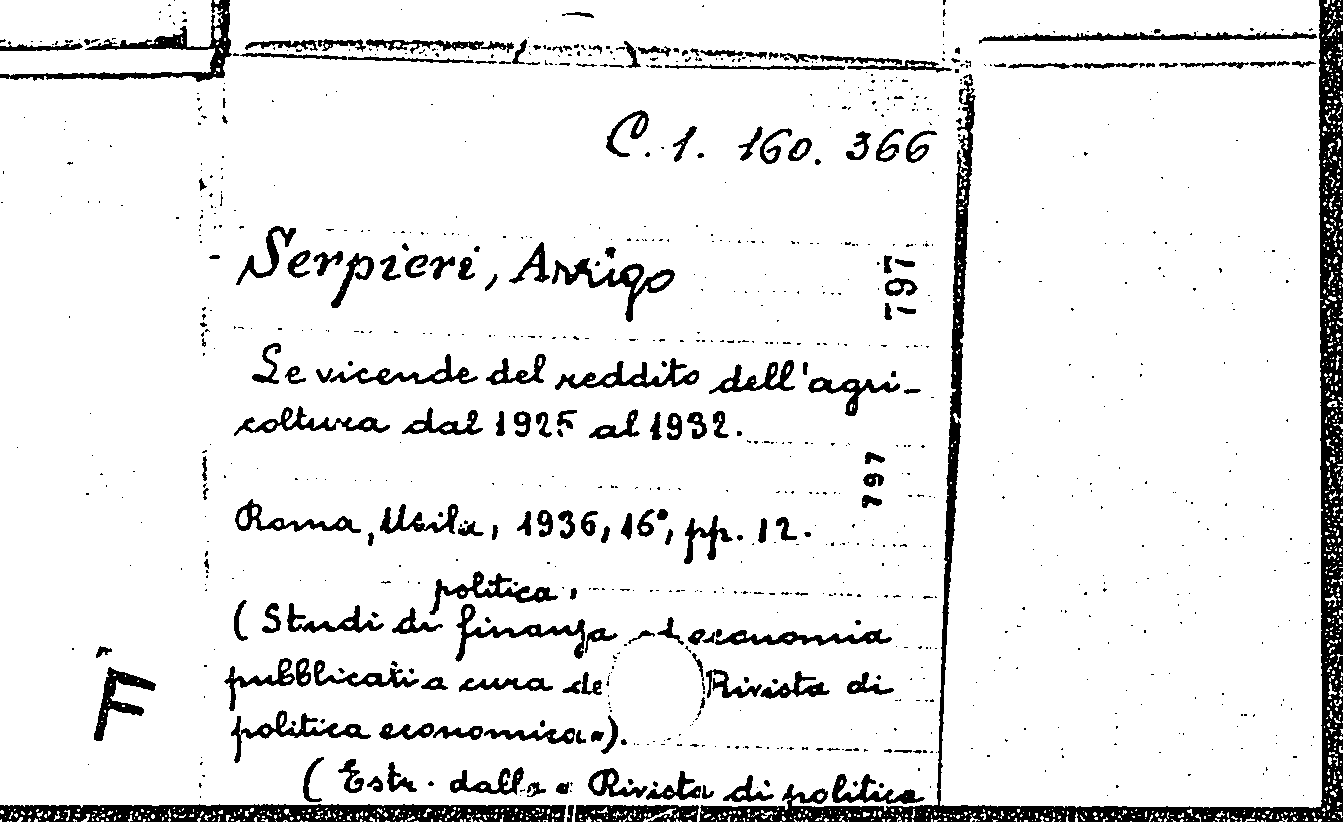 C. 1. 160. 366
Serpieri, Arrigo
797
Le vicende del reddito dell'agri-
coltura dal 1925 al 1932.
797
Roma, Usila, 1936, 16°, pp. 12.
politica,
(Studi di finanza ed economia
pubblicati a cura de Rivista di
politica economica»).
F
(Estr. dalla « Rivista di politica